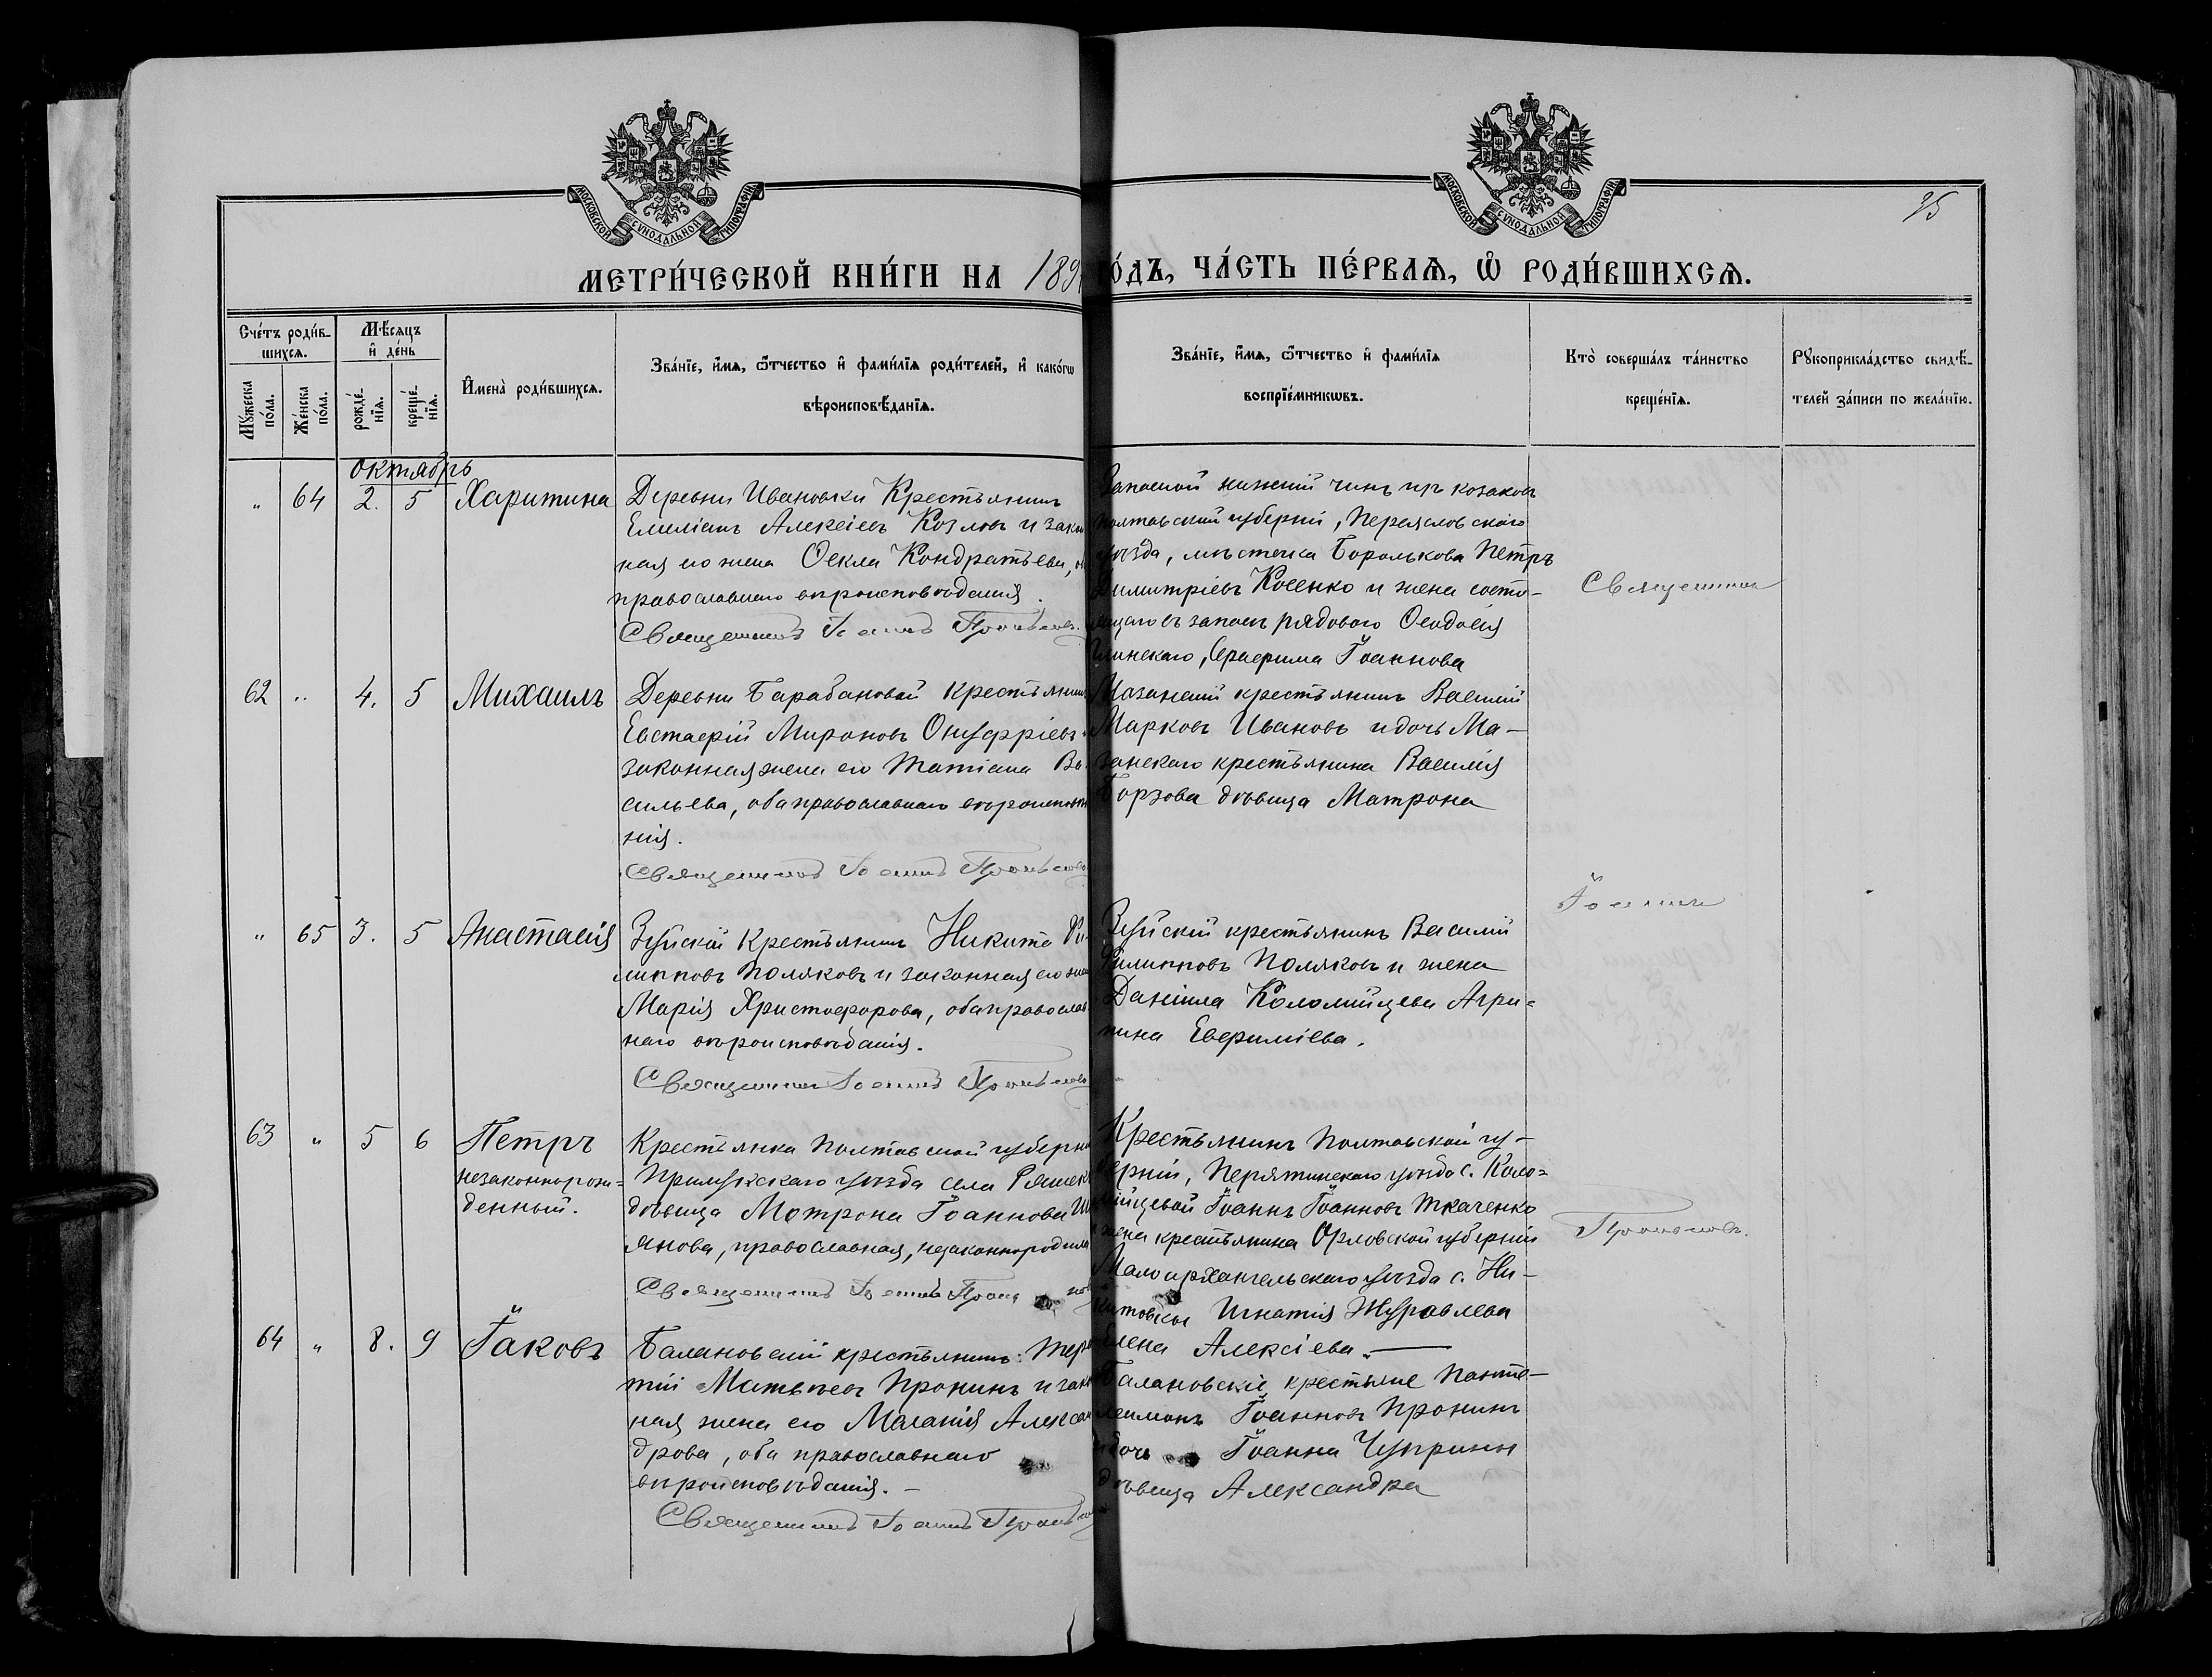 МОСКОВСКОЙ СѴНОДАЛЬНОЙ ТИПОГРАФІИ
МОСКОВСКОЙ СѴНОДАЛЬНОЙ ТИПОГРАФІИ
25
МЕТРИ́ЧЕСКОЙ КНИ́ГИ НА 189
О́ДЪ, ЧА́СТЬ ПЕ́РВАѦ, Ѽ РОДИ́ВШИХСѦ.
Сче́тъ роди́в-
шихсѧ.
Мѣ́сѧцъ
и҆ де́нь
Мꙋ́жеска по́ла.
Же́нска по́ла.
рожде́-
нїѧ.
креще́-
нїѧ.
И҆мена̀ роди́вшихсѧ.
Зва́нїе, и҆́мѧ, ѻ҆́тчество и҆ фами́лїѧ роди́телей, и҆ како́гѡ
вѣроисповѣ́данїѧ.
Зва́нїе, и҆́мѧ, ѻ҆́тчество и҆ фами́лїѧ
воспрїе́мникѡвъ.
Кто̀ соверша́лъ та́инство
креще́нїѧ.
Рꙋкоприкла́дство свидѣ́-
телей за́писи по жела́нїю.
октябрь
„ 64 2. 5 Харитина
Деревни Ивановки Крестьянинъ
Емиліанъ Алексіевъ Козловъ и закон
ная его жена Ѳекла Кондратьева, 
православнаго вѣроисповѣданія.
Священникъ Іоаннъ
Запасной нижній чинъ изъ козаковъ
Полтавской губерніи, Переяславскаго
уѣзда, мѣстечка Боролькова Петръ
Димитріевъ Косенко и жена состо-
ящаго въ запасѣ рядового Ѳеодосія
Серафима Іоаннова
62 „ 4. 5 Михаилъ
Деревни Барабановой крестьянинъ
Евстафій Мироновъ Онуфріевъ и
законная жена его Татіана Ва-
сильева, оба православнаго вѣроисповѣда
нія.
Священникъ Іоаннъ
Мазанскій крестьянинъ Василій
Марковъ Ивановъ и дочь Ма-
занскаго крестьянина Василія
Борзова дѣвица Матрона
„ 65 3. 5 Анастасія
Зуйскій Крестьянинъ Никита Фи-
липповъ Поляковъ и законная его жена
Марія Христофорова, оба православ-
наго вѣроисповѣданія.
Священникъ Іоаннъ
Зуйскій крестьянинъ Василій
Филипповъ Поляковъ и жена
Даніила Коломийцева Агри-
пина Евфиміева.
63 „ 5 6 Петръ
незаконнорож-
денный.
Крестьянка Полтавской губерніи
Прилукскаго уѣзда села
дѣвица Мотрона Іоаннова
янова, православная, незаконнородила
Священникъ Іоаннъ
Крестьянинъ Полтавской гу-
берніи, Пирятинскаго уѣзда с. Коло-
мійцевой Іоаннъ Іоанновъ Ткаченко
и жена крестьянина Орловской губерніи
Малоархангельскаго уѣзда с. Ни-
китовки Игнатія Журавлева
Елена Алексіева.
64 „ 8. 9 Іаковъ
Балановскій крестьянинъ: Терен
тій Матвѣевъ Пронинъ и закон
ная жена его Маланія Алексан
дрова, оба православнаго
вѣроисповѣданія.
Священникъ Іоаннъ
Балановскіе крестьяне Панте-
леимонъ Іоанновъ Пронинъ
и дочь Іоанна Чуприны
дѣвица Александра
Священникъ
Іоаннъ